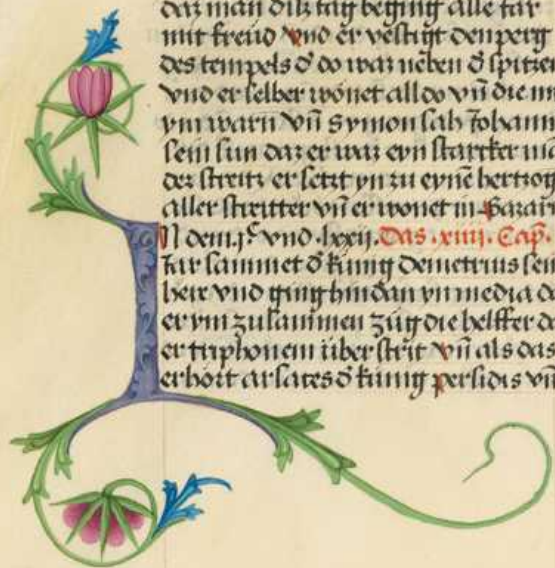 daz man diß tag beging alle iar
mit freud vnd er vestigt den perg
des tempels d̕ do waz neben d̕ spitzen
vnd er selber wonet alldo vn̄ die m
ym warn vn̄ Symon sah Johann
sein sun daz er waz eyn starcker ma
der streitz er setzt yn zu eynē hertzog
aller streitter vn̄ er wonet in Gazar
IN dem .jᶜ vnd .lxxij. Das .xiiij. Cap.
iar sammet d̕ kunig demetrius sein
here vnd ging hindan yn media d
er ym zusammen züg die helffer d
er triphonem über strit vn̄ als das
erhort arsates d̕ kunig persidis vn̄